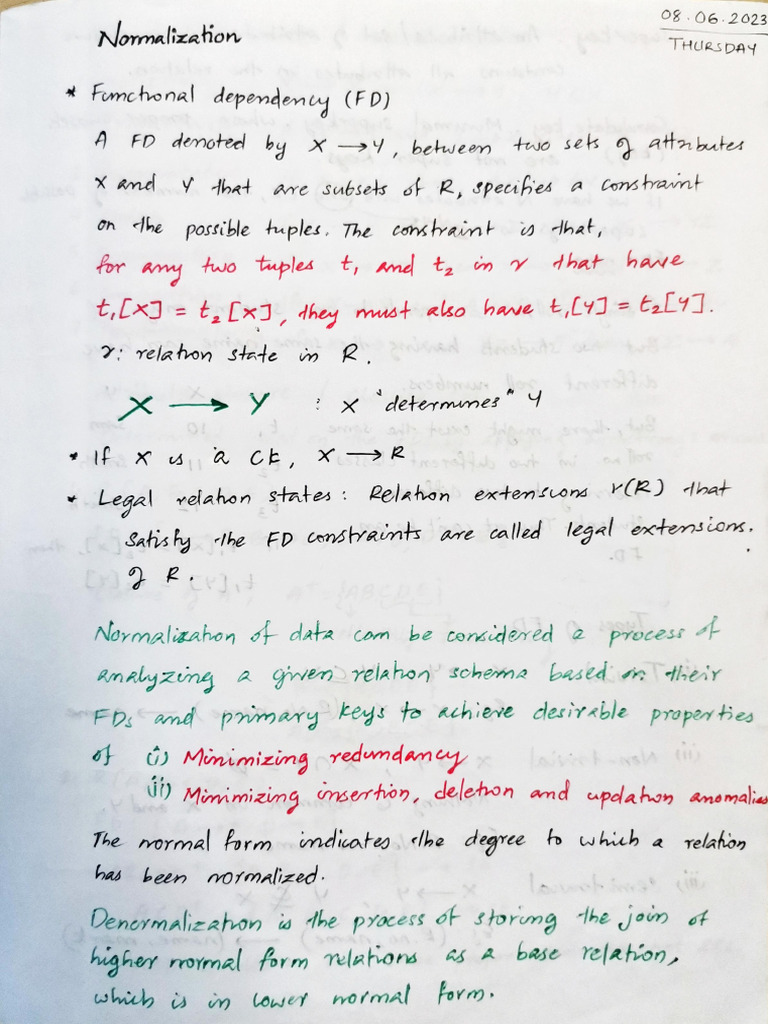 08.06.2023
THURSDAY
Normalization
* Functional dependency (FD)
A FD denoted by X → Y, between two sets of attributes
X and Y that are subsets of R, specifies a constraint
on the possible tuples. The constraint is that,
for any two tuples t₁ and t₂ in r that have
t₁[X] = t₂[X], they must also have t₁[Y] = t₂[Y].
r: relation state in R.
X → Y : X "determines" Y
* If X is a CK, X → R
* Legal relation states: Relation extensions r(R) that
satisfy the FD constraints are called legal extensions.
of R.
Normalization of data can be considered a process of
analyzing a given relation schema based on their
FDs and primary keys to achieve desirable properties
of (i) Minimizing redundancy
(ii) Minimizing insertion, deletion and updation anomalies
The normal form indicates the degree to which a relation
has been normalized.
Denormalization is the process of storing the join of
higher normal form relations as a base relation,
which is in lower normal form.